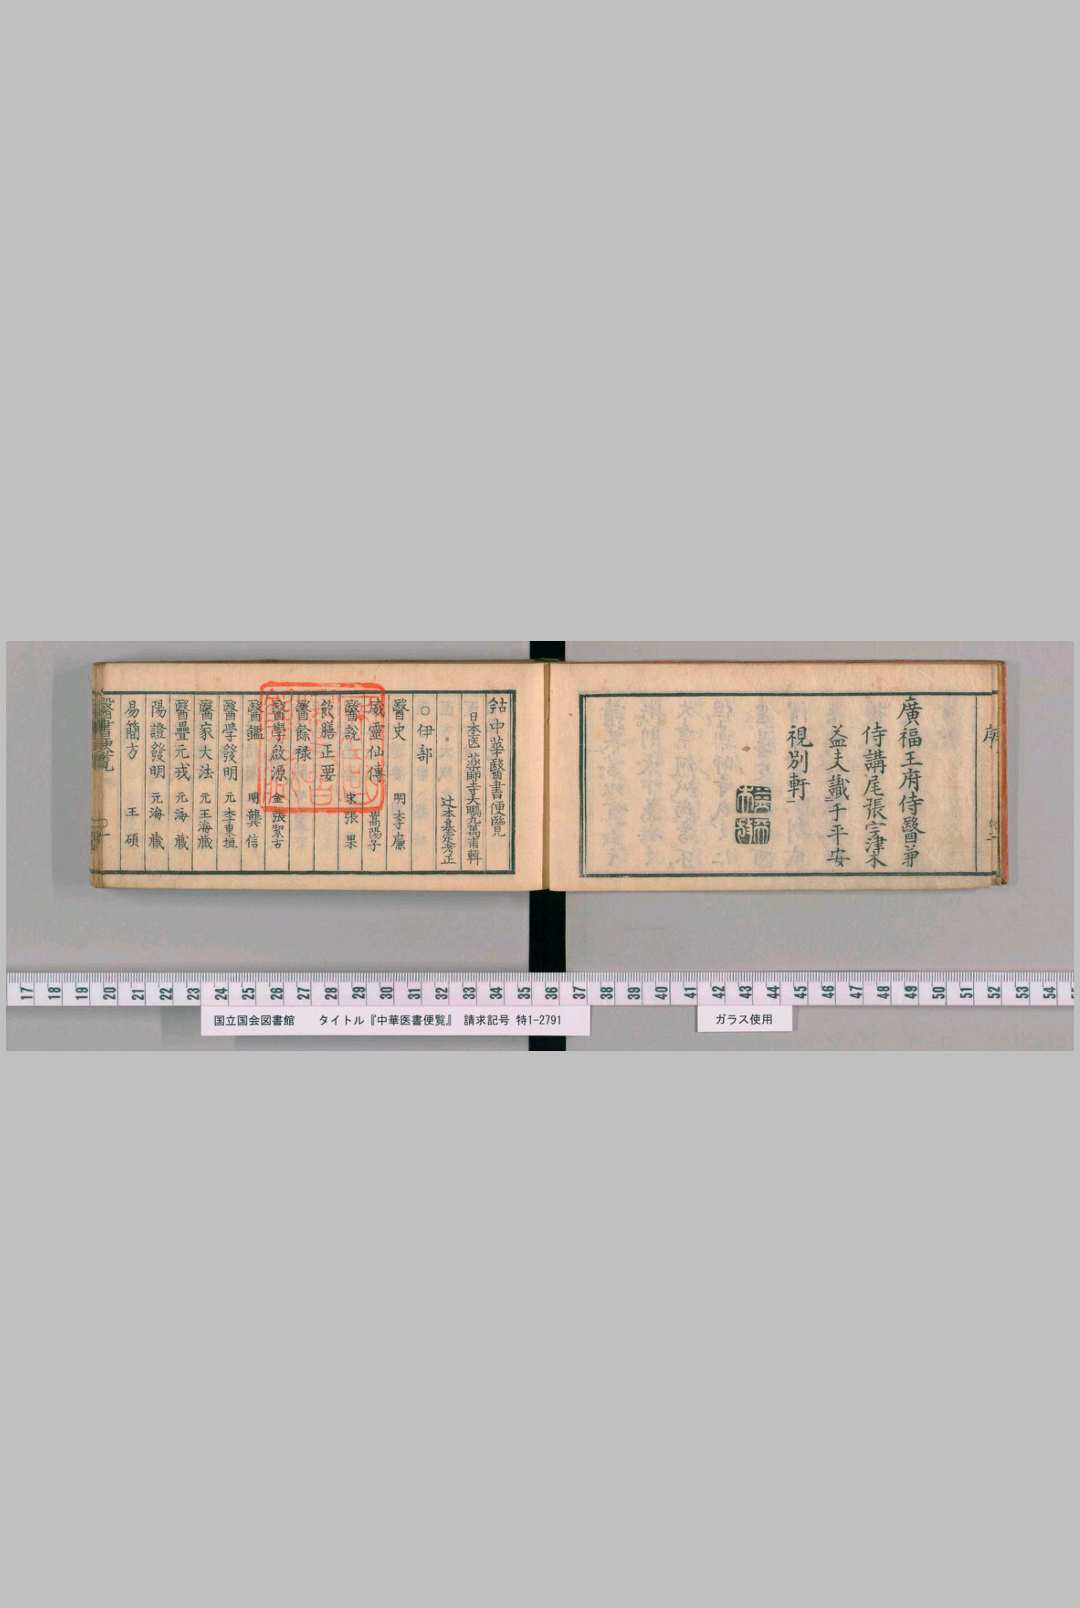 序
廣福王府侍醫㐧
侍講尾張宗津木
益夫識于平安
視別軒
中華醫書便覽
日本医 藥師寺大鵬九萬甫輯
辻本基basic秀正
○伊部
醫史 明 李廉
威靈仙傳 嵩陽子
醫說 宋 張果
飲膳正要
醫餘祿
醫學啟源 金 張絜古
醫鑑 明 龔信
醫學發明 元 李東垣
醫家大法 元 王海藏
醫壘元戎 元 海藏
陽證發明 元 海藏
易簡方 王碩
醫書便覽
17 18 19 20 21 22 23 24 25 26 27 28 29 30 31 32 33 34 35 36 37 38 39 40 41 42 43 44 45 46 47 48 49 50 51 52 53 54
国立国会図書館 タイトル『中華医書便覧』 請求記号 特1-2791
ガラス使用